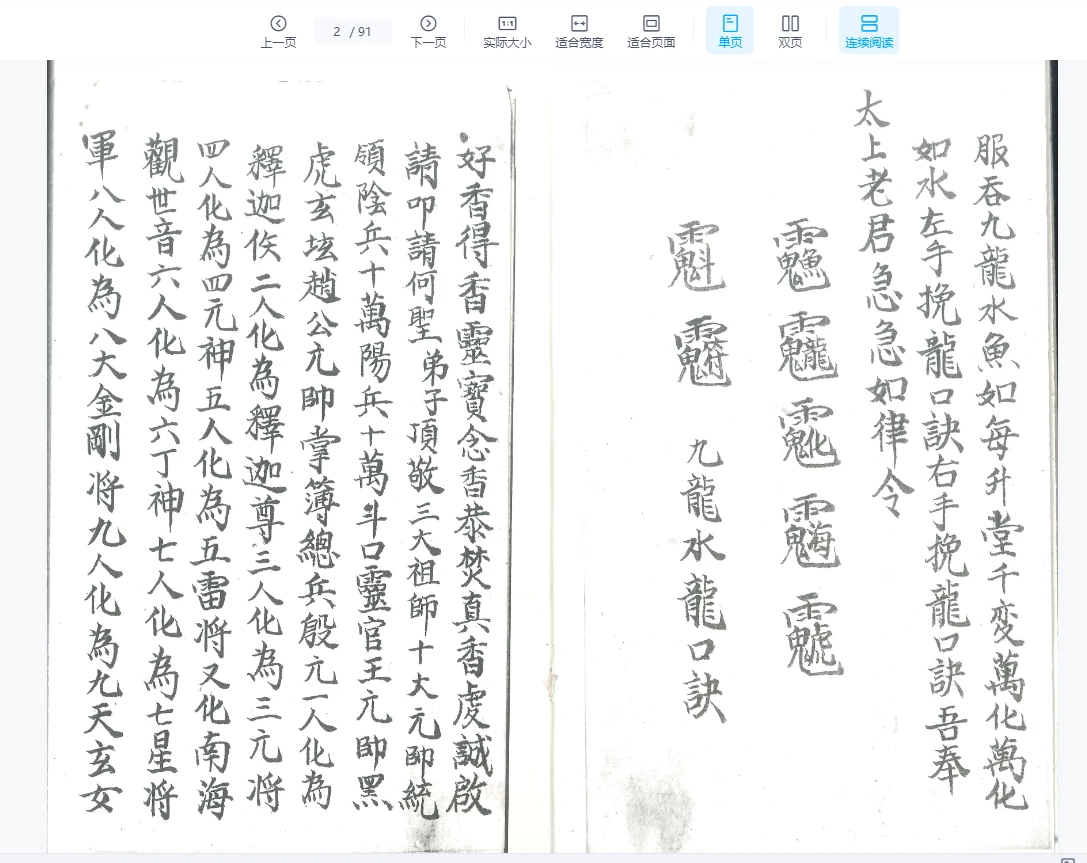 上一页
2 / 91
下一页
1:1
实际大小
适合宽度
适合页面
单页
双页
连续阅读
服吞九龍水魚如每升堂千变萬化萬化
如水左手挽龍口訣右手挽龍口訣吾奉
太上老君急急如律令
九龍水龍口訣
好香得香靈寶念香恭焚真香虔誠啟
請叩請何聖弟子頂敬三大祖師十大元帥統
領陰兵十萬陽兵十萬斗口靈官王元帥黑
虎玄坛趙公元帥掌簿總兵殷元一人化為
釋迦佚二人化為釋迦尊三人化為三元将
四人化為四元神五人化為五雷将又化南海
觀世音六人化為六丁神七人化為七星将
軍八人化為八大金剛将九人化為九天玄女